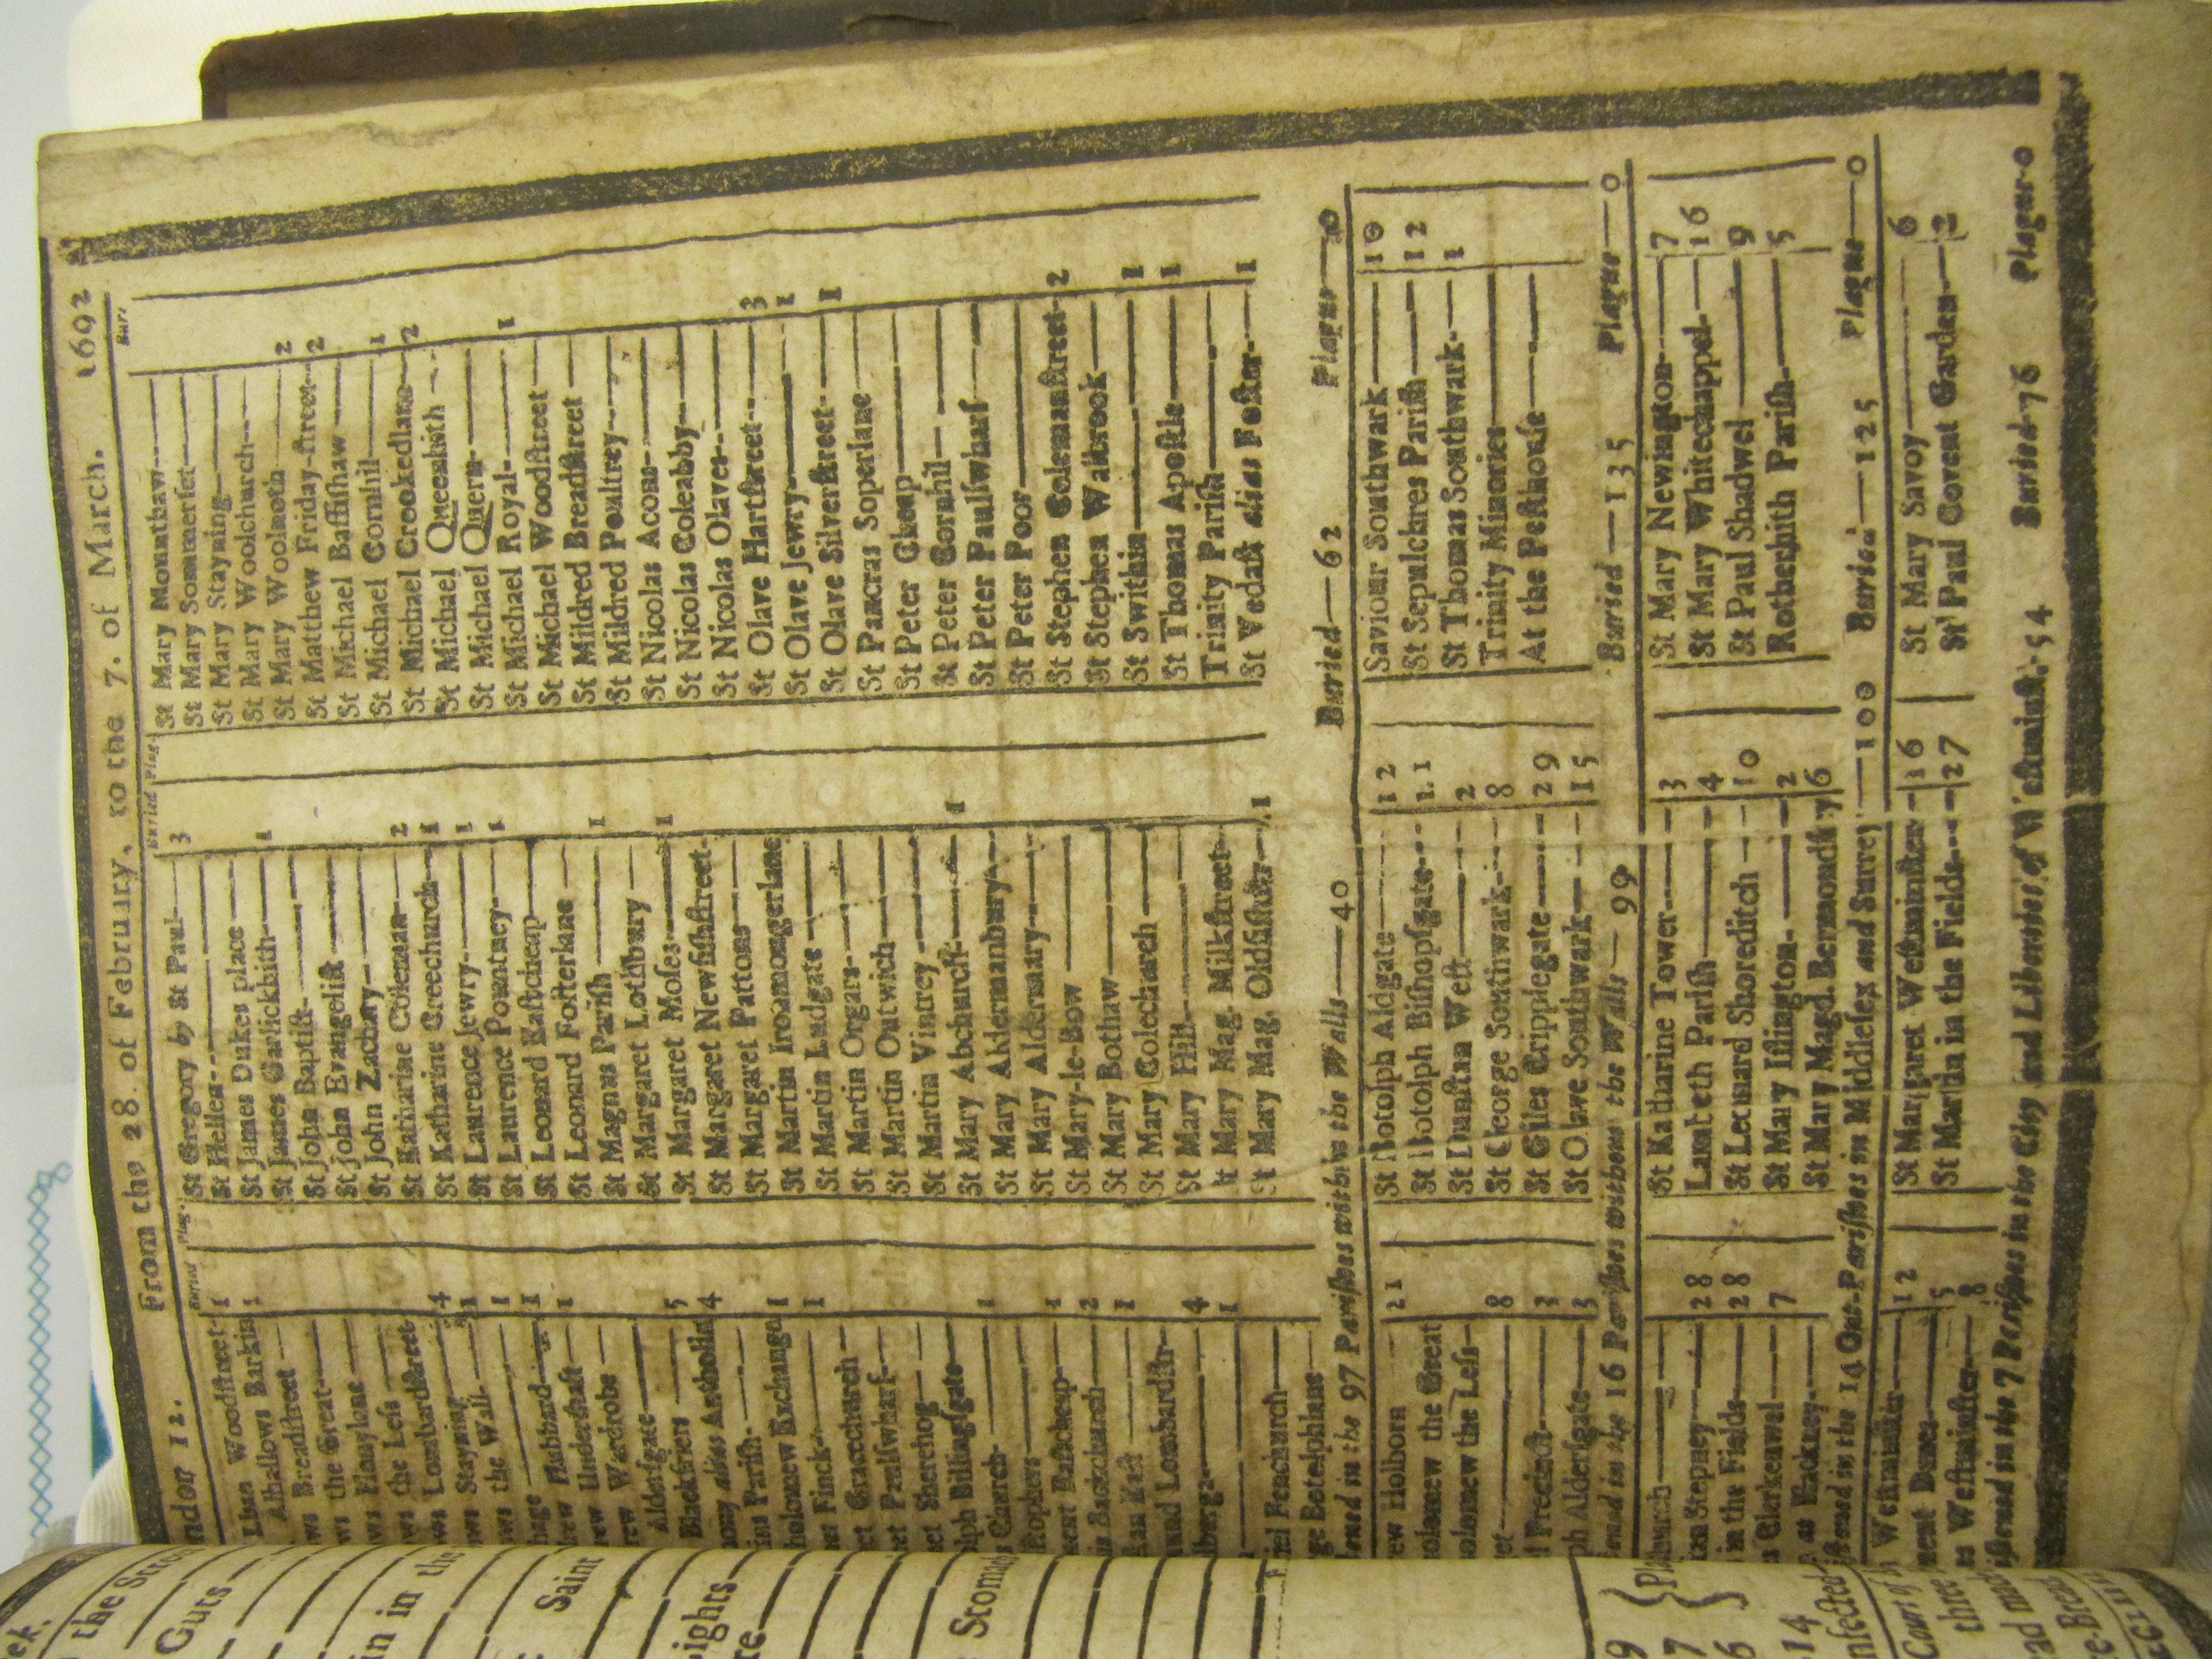 ndon 12. From the 28. of February, to the 7. of March. 1692
Buried Plag.
Buried Plag.
Buri
lban Woodſtreet- 1
Alhallows Barkin 1
ws Breadſtreet
the Great
ws Honylane
ws the Leſs
ws Lombardſtreet 4
ws Stayning 1
ws the Wall 1
hage 1
rew Hubbard 1
rew Underſhaft 1
rew Wardrobe
Alderſgate
Blackfriers 5
ony alias Antholin 4
ins Pariſh
holomew Exchange 1
et Finck 1
et Gracechurch
et Paulſwharf
et Sherehog
lph Billingſgate
s Church 1
ſtophers
ment Eaſtcheap 1
is Backchurch 2
tan Eaſt 1
und Lombardſtr 4
lburga 1
riel Fenchurch
ge Botolphlane
St Gregory by St Paul 3
St Hellen
St James Dukes place
St James Garlickhith 1
St John Baptiſt
St John Evangeliſt
St John Zachary
St Katharine Coleman 2
St Katharine Creechurch 1
St Laurence Jewry 1
St Laurence Pountney 1
St Leonard Eaſtcheap
St Leonard Foſterlane
St Magnus Pariſh 1
St Margaret Lothbury
St Margaret Moſes 1
St Margaret Newfiſhſtreet
St Margaret Pattons
St Martin Ironmongerlane
St Martin Ludgate
St Martin Orgars
St Martin Outwich
St Martin Vintrey
St Mary Abchurch 1
St Mary Aldermanbury
St Mary Aldermary
St Mary-le-Bow
St Mary Bothaw
St Mary Colechurch
St Mary Hill
St Mary Mag. Milkſtreet
St Mary Mag. Oldfiſhſtr 1
St Mary Mounthaw
St Mary Sommerſet
St Mary Stayning
St Mary Woolchurch
St Mary Woolnoth 2
St Matthew Friday-ſtreet 2
St Michael Baſſiſhaw
St Michael Cornhil 1
St Michael Crookedlane 2
St Michael Queenhith
St Michael Quern
St Michael Royal 1
St Michael Woodſtreet
St Mildred Breadſtreet
St Mildred Poultrey
St Nicolas Acons
St Nicolas Coleabby
St Nicolas Olaves
St Olave Hartſtreet 3
St Olave Jewry 1
St Olave Silverſtreet 1
St Pancras Soperlane
St Peter Cheap
St Peter Cornhil
St Peter Paulſwharf
St Peter Poor
St Stephen Colemanſtreet 2
St Stephen Walbrook
St Swithin 1
St Thomas Apoſtle 1
Trinity Pariſh
St Vedaſt alias Foſter 1
ſtened in the 97 Pariſhes within the Walls — 40 Buried — 62 Plague — 0
rew Holborn 21
olomew the Great
olomew the Leſs
et 8
l Precinct 3
ph Alderſgate 3
St Botolph Aldgate 12
St Botolph Biſhopſgate 11
St Dunſtan Weſt 2
St George Southwark 8
St Giles Cripplegate 29
St Olave Southwark 15
Saviour Southwark 10
St Sepulchres Pariſh 12
St Thomas Southwark 1
Trinity Minories
At the Peſthouſe
ſtened in the 16 Pariſhes without the Walls — 99 Buried — 135 Plague — 0
church
tan Stepney 28
in the Fields 28
s Clerkenwel 7
at Hackney
St Katharine Tower 3
Lambeth Pariſh 4
St Leonard Shoreditch 10
St Mary Iſlington 2
St Mary Magd. Bermondſey 6
St Mary Newington 7
St Mary Whitechappel 16
St Paul Shadwel 9
Rotherhith Pariſh 5
iſtened in the 14 Out-Pariſhes in Middleſex and Surrey — 100 Buried — 125 Plague — 0
ment Danes 12
5
es Weſtminſter 8
St Margaret Weſtminſter 16
St Martin in the Fields 27
St Mary Savoy 6
St Paul Covent Garden 2
iſtened in the 7 Pariſhes in the City and Liberties of Weſtminſt. 54 Buried 76 Plague 0
eek.
the Stre
Guts
in in the
Saint
ights
re
Stomach
9
7
6
14
Court of
three
ad